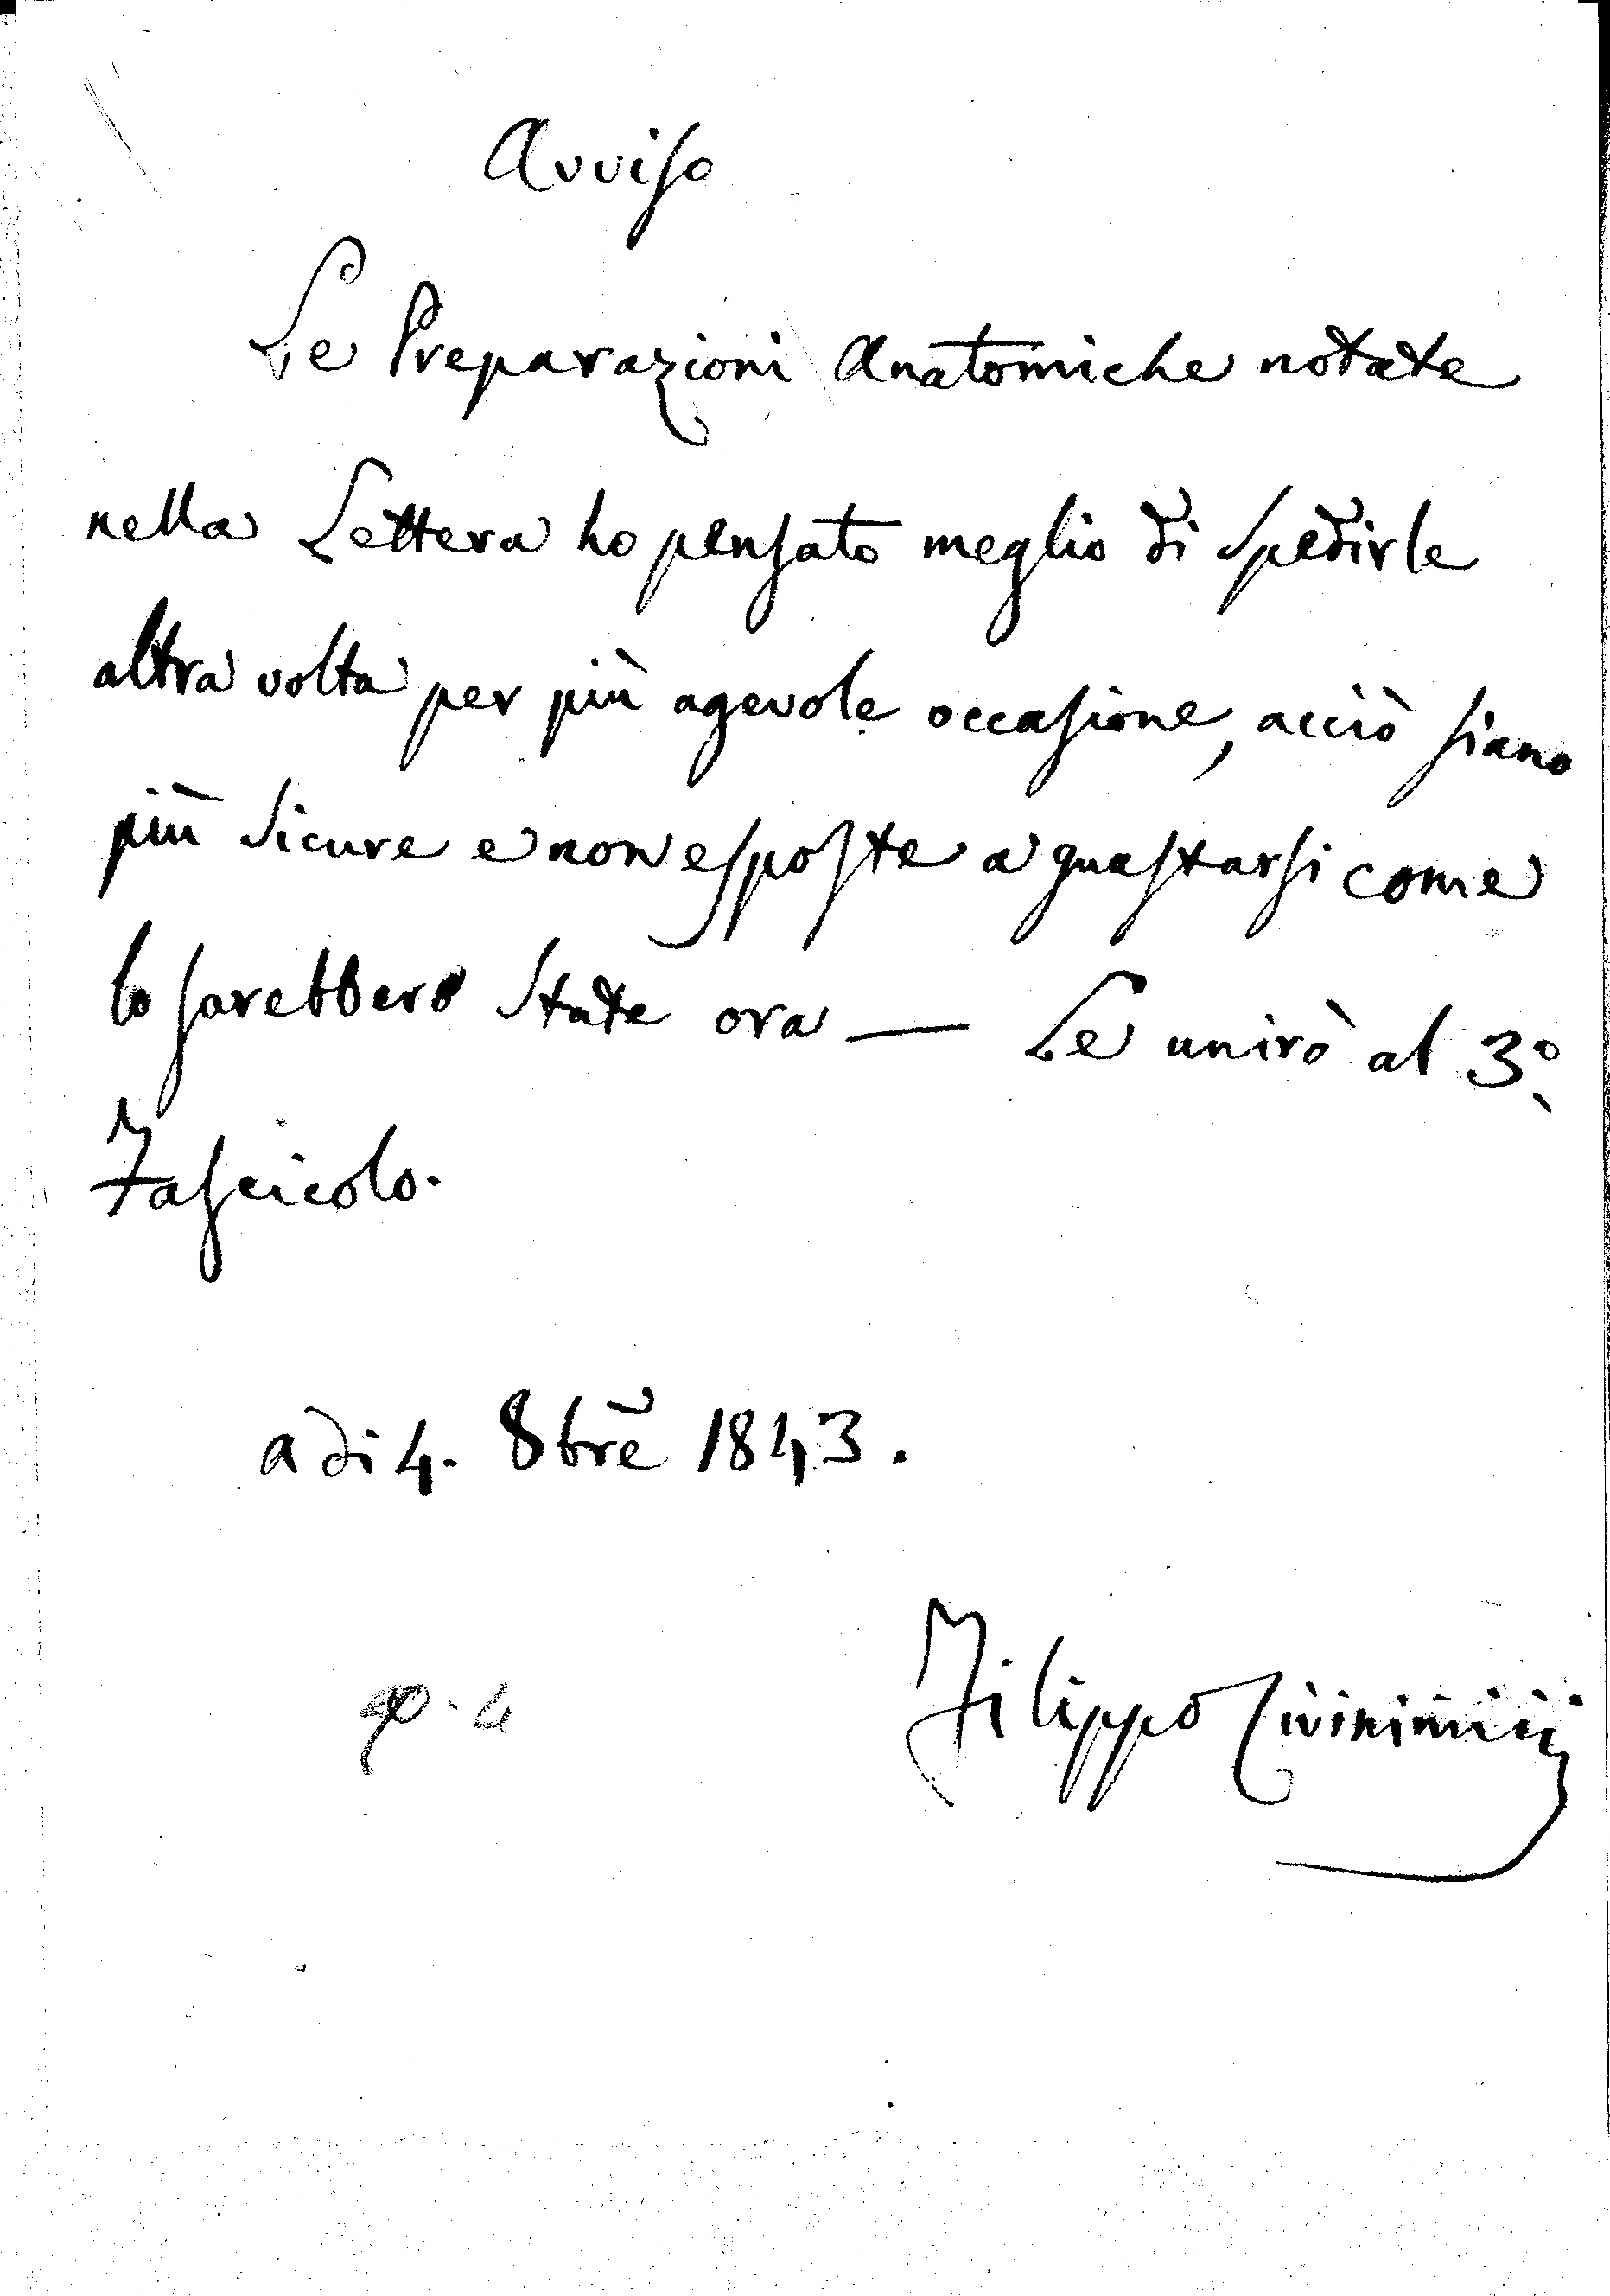 Avviso
Le Preparazioni Anatomiche notate
nella Lettera ho pensato meglio di spedirle
altra volta per più agevole occasione, acciò siano
più sicure e non esposte a guastarsi come
lo sarebbero state ora — Le unirò al 3º
Fascicolo.
a di 4. 8brē 1843.
Filippo Civinini